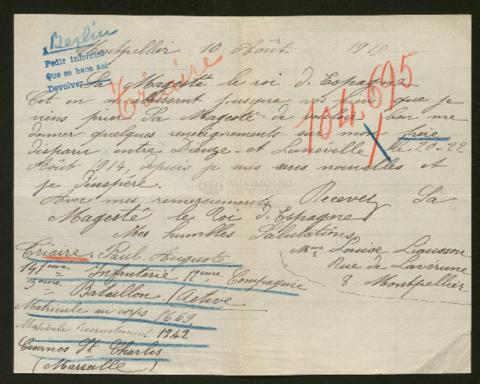 Berlin
Pedir informes
Que se hace así
Devolver
Montpellier 10 Août 191
Triaire
104.695
Sa Magesté le roi d'Espagne
Cet en m'abaissant jusqua vos pieds que je
viens prier Sa Magesté de vouloir bien me
donner quelques renseignements sur mon frère
disparu entre Dieuze et Lunéville le 20-22
Août 1914, depuis je suis sans nouvelles et
je désespère.
Avec mes remerciements Recevez, Sa
Magesté le Roi d'Espagne
Mes humbles Salutations
Mme Louise
Rue de Laverune
8 Montpellier
PATRIMONIO
NACIONAL
Triaire Paul Auguste
141eme Infanterie, 11eme Compagnie
3eme Bataillon /Active
Matricule au corps 1669
Matricule recrutement 1242
Casernes St Charles
(Marseille)